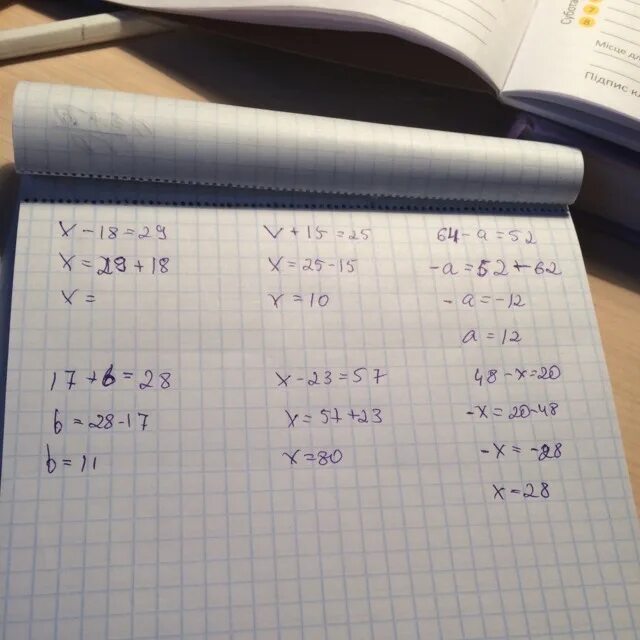 Субота
Місце
Підпис
x - 18 = 29
x = 29 + 18
x =
x + 15 = 25
x = 25 - 15
x = 10
64 - a = 52
-a = 52 - 62
-a = -12
a = 12
17 + b = 28
b = 28 - 17
b = 11
x - 23 = 57
x = 57 + 23
x = 80
48 - x = 20
-x = 20 - 48
-x = -28
x = 28